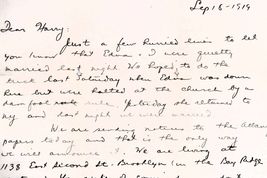 Sep 16-1919
Dear Harry:
Just a few hurried lines to tell
you know that Edna & I were quietly
married last night. We hoped to do the
trick last Saturday when Edna was down
here but were halted at the church by a
darn fool rule. Yesterday she returned to
ny and last night we were married
We are sending notices to the
papers today and that is the only way
we will announce it. We are living at
1138 East Second St. Brooklyn (in the Bay Ridge